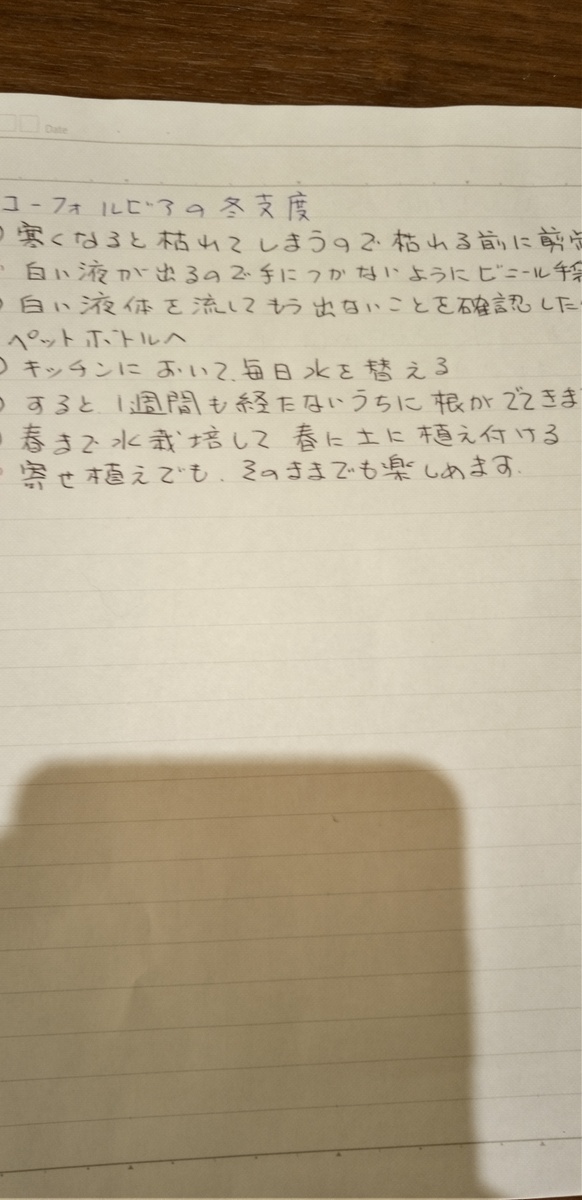 Date
ユーフォルビアの冬支度
寒くなると枯れてしまうので枯れる前に剪定
白い液が出るので手につかないようにビニール手袋
白い液体を流してもう出ないことを確認した
ペットボトルへ
キッチンにおいて、毎日水を替える
すると、1週間も経たないうちに根がでてきま
春まで水栽培して春に土に植え付ける
寄せ植えでも、そのままでも楽しめます.